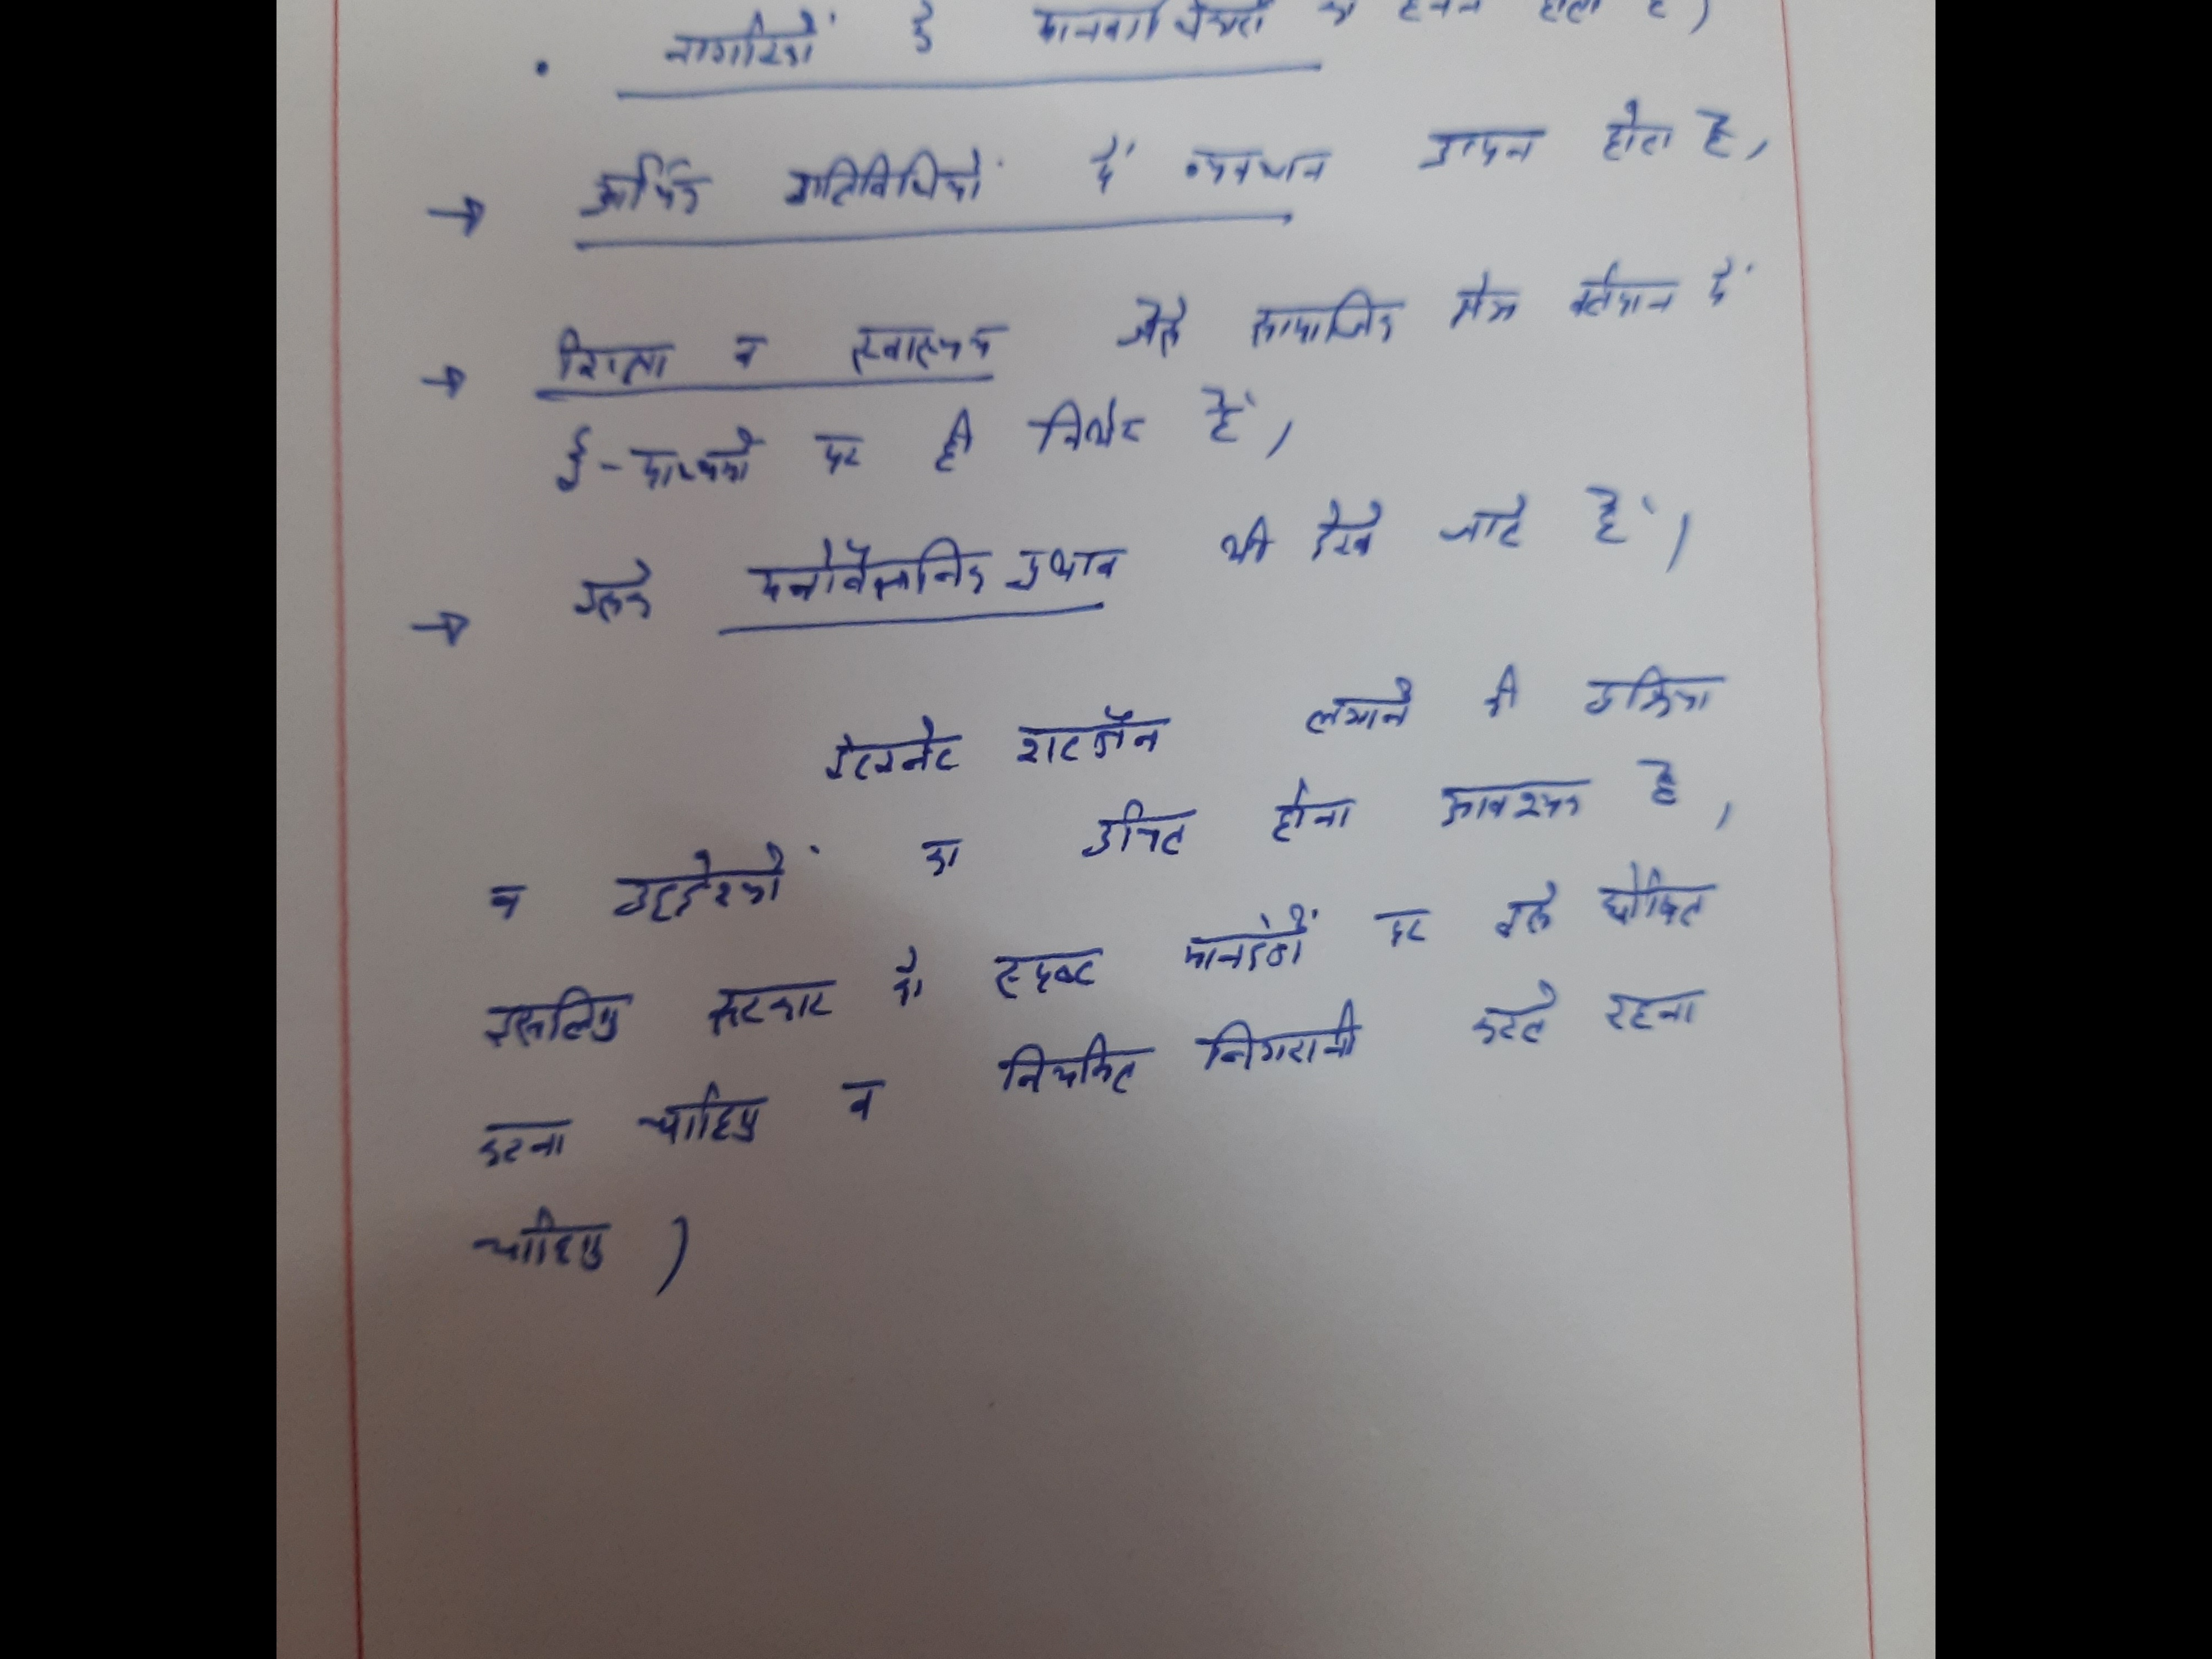 • नागरिकों के मानवाधिकारों का हनन होता है।
→ आर्थिक गतिविधियों में व्यवधान उत्पन्न होता है,
→ शिक्षा व स्वास्थ्य जैसे सामाजिक क्षेत्र वर्तमान में
ई-माध्यमों पर ही निर्भर हैं,
→ इसके मनोवैज्ञानिक प्रभाव भी देखे जाते हैं,
इंटरनेट शटडॉन लगाने की प्रक्रिया
व उद्देश्यों का उचित होना आवश्यक है,
इसलिए सरकार को स्पष्ट मानदंडों पर इसे घोषित
करना चाहिए व नियमित निगरानी करते रहना
चाहिए।